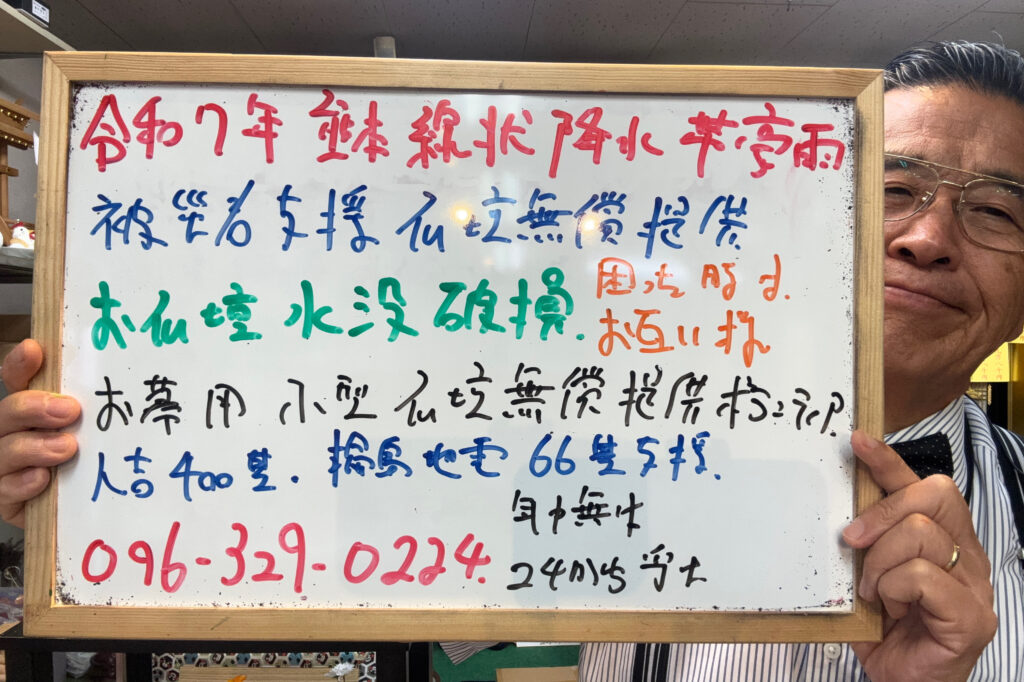 令和7年 熊本 線状降水帯豪雨
被災者支援 仏壇無償提供
お仏壇 水没 破損.
困った時は.
お互い様
お 用 小型 仏壇無償提供
人吉400基. 輪島地震 66基支援.
年中無休
096-329-0224.
24から